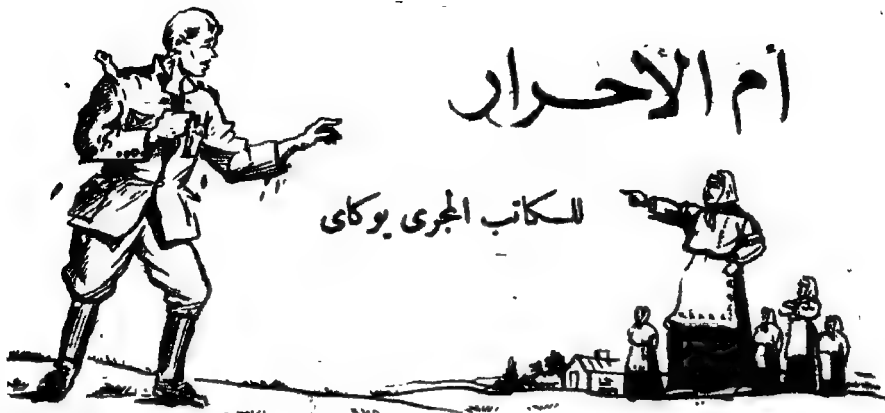 أم الأحرار
للكاتب المجرى يوكاى